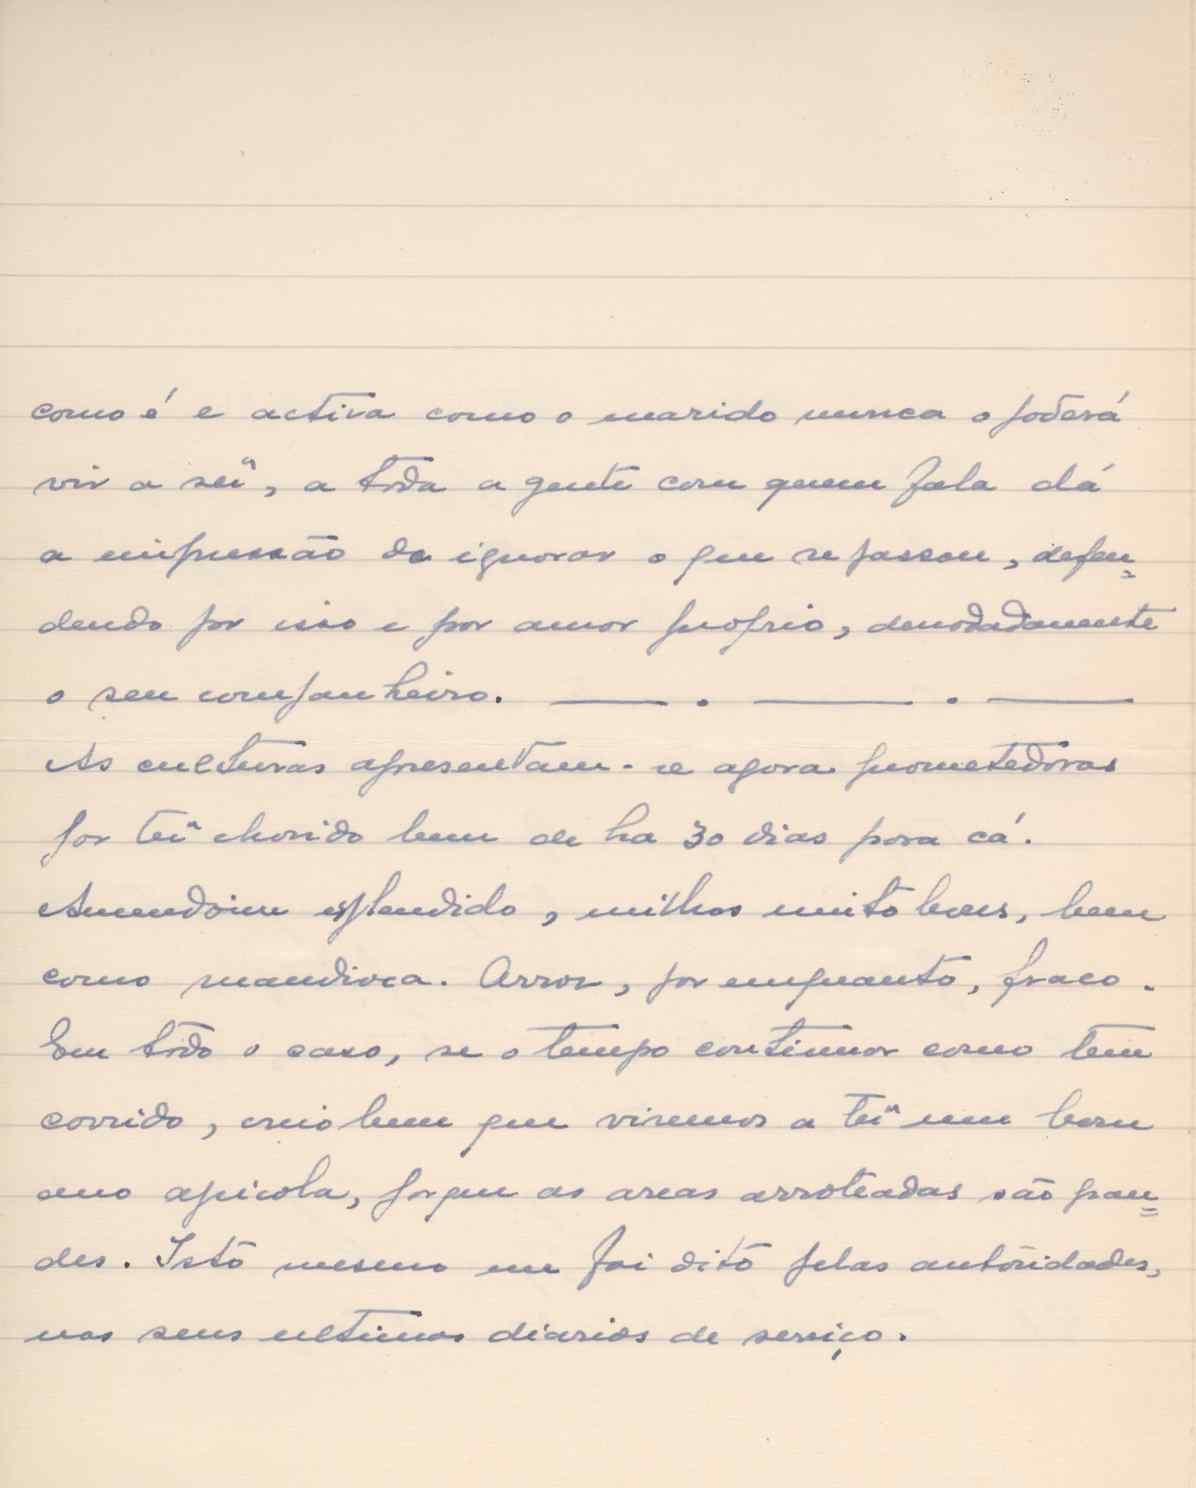 como é e activa como o marido nunca o poderá
vir a ser, a toda a gente com quem fala dá
a impressão de ignorar o que se passou, defen=
dendo por isso e por amor proprio, denodadamente
o seu companheiro. ——— . ——— . ———
As culturas apresentam-se agora prometedoras
por ter chovido bem de ha 30 dias para cá.
Amendoim esplendido, milhos muito bons, bem
como mandioca. Arroz, por emquanto, fraco.
Em todo o caso, se o tempo continuar como tem
corrido, creio bem que viremos a ter um bom
ano agricola, porque as areas arroteadas são gran=
des. Isto mesmo me foi dito pelas autoridades,
nos seus ultimos diarios de serviço.